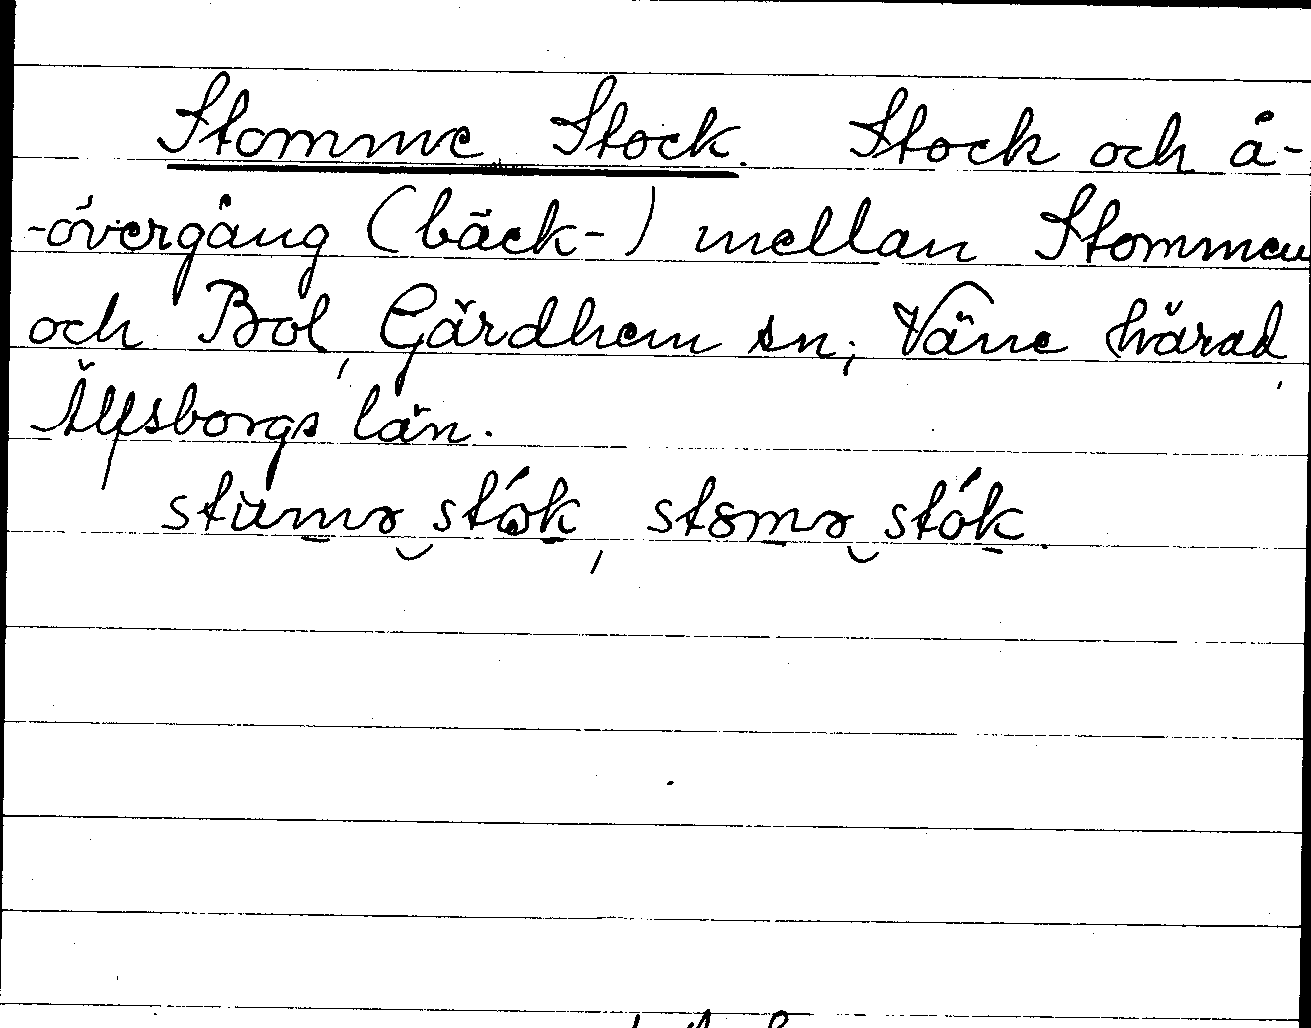 Stomme Stock. Stock och å-
-övergång (bäck-) mellan Stommen
och Bol, Gärdhem sn; Väne härad,
Älfsborgs län.
stumə stók, stɷmə stók.